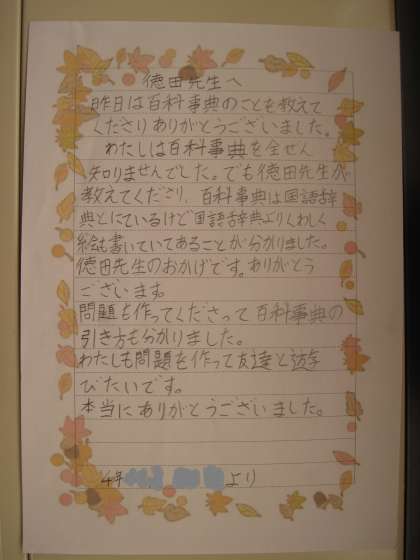 徳田先生へ
昨日は百科事典のことを教えて
くださりありがとうございました。
わたしは百科事典を全ぜん
知りませんでした。でも徳田先生が
教えてくださり、百科事典は国語辞
典とにているけど国語辞典よりくわしく
絵も書いていてあることが分かりました。
徳田先生のおかげです。ありがとう
ございます。
問題を作ってくださって百科事典の
引き方も分かりました。
わたしも問題を作って友達と遊
びたいです。
本当にありがとうございました。
4年 より